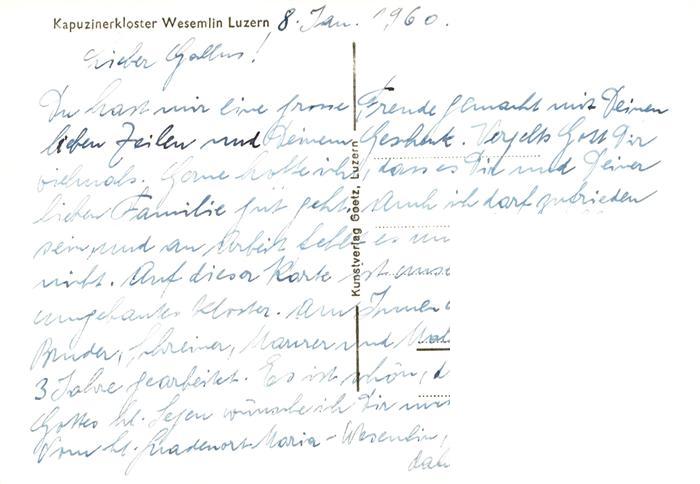 Kapuzinerkloster Wesemlin Luzern 8. Jan. 1960.
Lieber Gallus!
Du hast mir eine grosse Freude gemacht mit Deinen
lieben Zeilen und Deinem Geschenk. Vergelts Gott Dir
vielmals. Gerne hoffe ich, dass es Dir und Deiner
lieben Familie gut geht. Auch ich darf zufrieden
sein, und an Arbeit fehlt es uns
nicht. Auf dieser Karte ist unse
umgebautes Kloster. Am Innen
Bruder, Schreiner, Maurer und Mal
3 Jahre gearbeitet. Es ist schön, d
Gottes hl. Segen wünsche ich Dir und
Vom hl. Gnadenort Maria-Wesemlin,
dah
Kunstverlag Goetz, Luzern